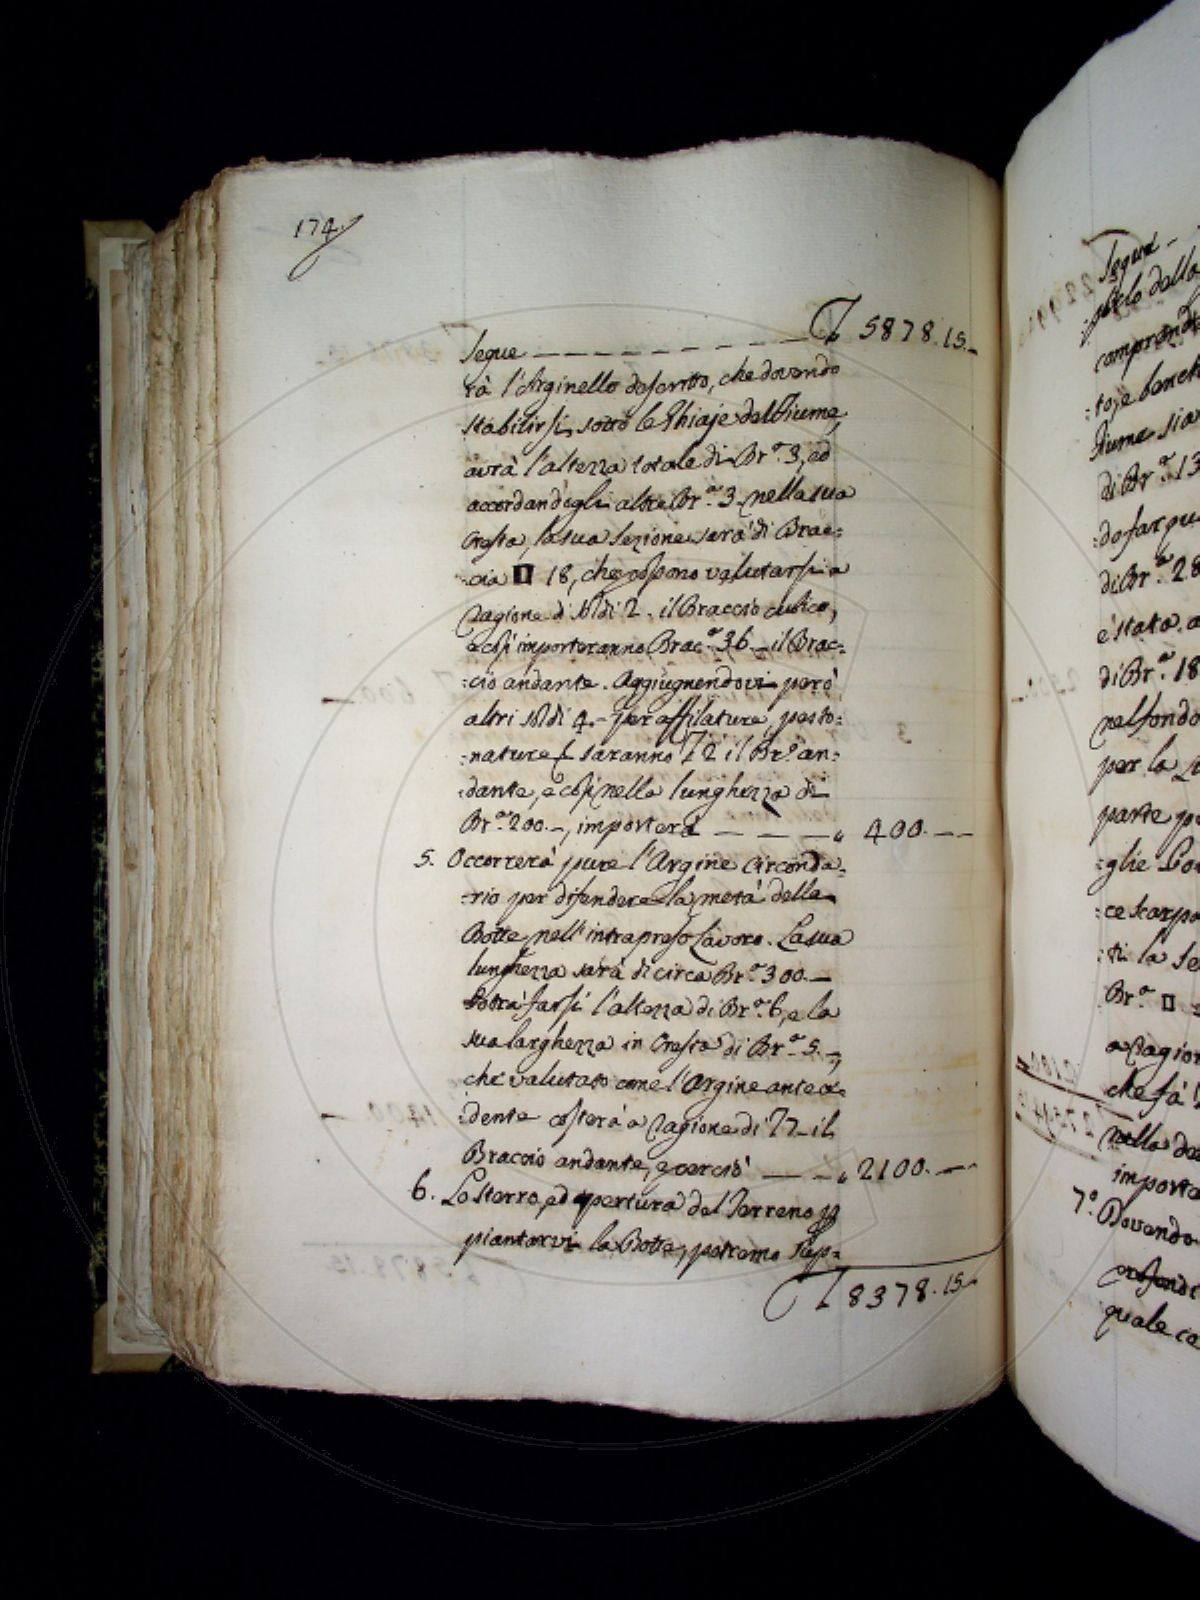 174.
Segue — — — — — — — — £ 5878.15.–
rà l'Arginello descritto, che dovendo
stabilirsi sotto le Ghiaje del Fiume,
avrà l'altezza totale di Br.ª 3, ed
accordandogli altre Br.ª 3. nella sua
Cresta, la sua Sezione sarà di Brac:
:cia □ 18, che possono valutarsi a
ragione di soldi 2. il Braccio cubico,
e così importeranno Brac.ª 36 – il Brac:
:cio andante. Aggiugnendovi però
altri soldi 4.– per affilature, pesto:
:nature saranno £ 2 il Br.º an:
:dante, e così nella lunghezza di
Br.ª 200.–, importerà — — — — „ 400.– –
5. Occorrerà pure l'Argine circonda:
:rio per difendere la metà della
Botte nell'intrapreso Lavoro. La sua
lunghezza sarà di circa Br.ª 300.–
Potrà farsi l'altezza di Br.ª 6, e la
sua larghezza in Cresta di Br.ª 5.–,
che valutato come l'Argine antece:
:dente costerà a ragione di £ 7– il
Braccio andante, e perciò — — – „ 2100.– –
6. Lo sterro, ed apertura del Terreno p
piantarvi la Botte, potremo sup:
£ 8378.15.–
Segue –
:polo della
comprend
:to, e banch
Fiume sia
di Br.ª 13
:do far qu
di Br.ª 28
è stata a
di Br.ª 18
nel fondo
per la
parte p
:glie
ce scarpe
:ti la Se
Br.ª □
a ragion
che fà
nella
importe
7.º Dovendo
quale ca